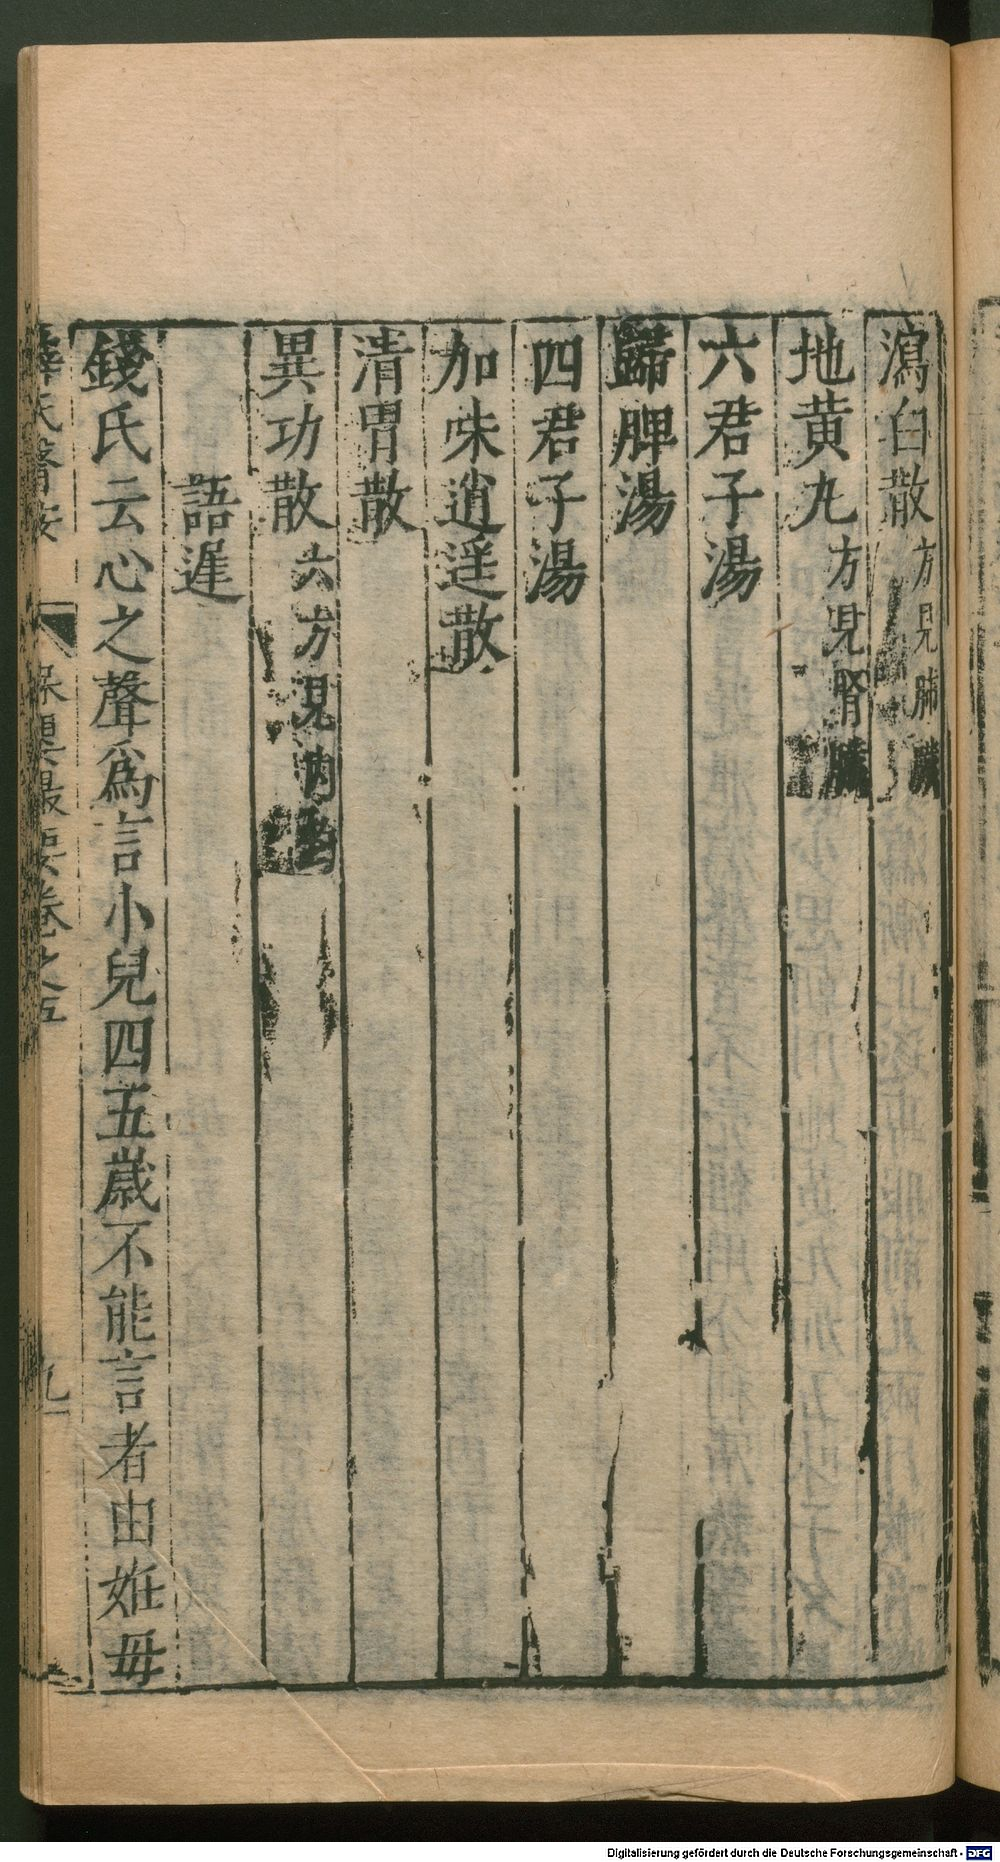 瀉白散方見肺臟
地黃丸方見腎臟
六君子湯
歸脾湯
四君子湯
加味逍遥散
清胃散
異功散六方見內
語遲
錢氏云心之聲爲言小兒四五歲不能言者由妊毋
薛氏醫按 保嬰撮要卷之五 九
Digitalisierung gefördert durch die Deutsche Forschungsgemeinschaft - DFG